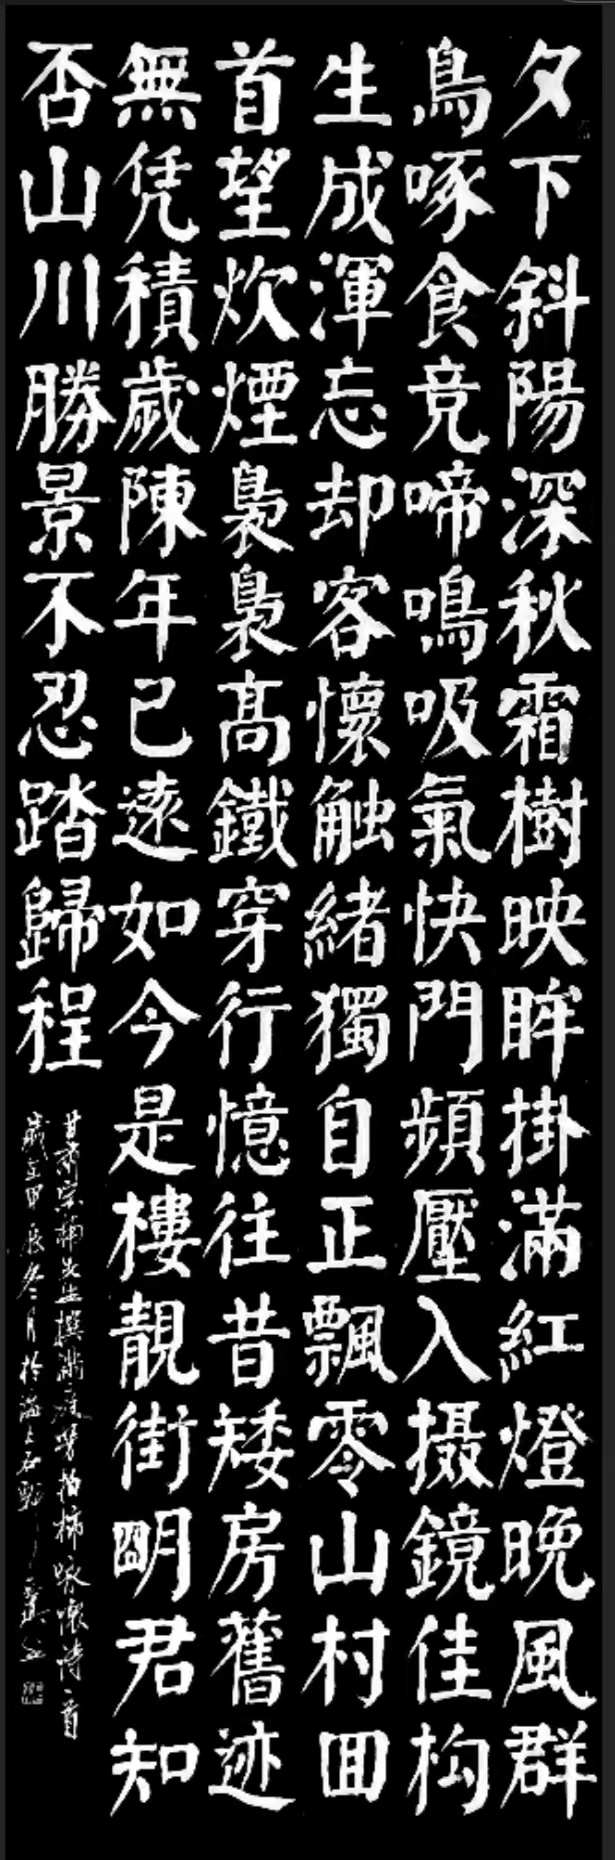 夕下斜陽深秋霜樹映眸掛滿紅燈晚風群
鳥啄食竞啼鳴吸氣快門頻壓入摄鏡佳构
生成渾忘却客懷触緒獨自正飄零山村囬
首望炊煙裊裊髙鐵穿行憶往昔矮房舊迹
無凭積歲陳年已遠如今是樓靚街朙君知
否山川勝景不忍踏歸程
甘肅宗楠先生撰滿庭芳拍柿咏懷詩一首
歲在甲辰冬月於滬上